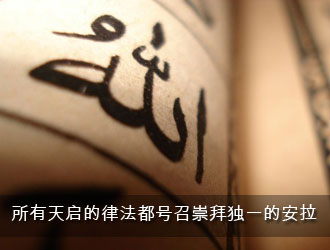 الله
所有天启的律法都号召崇拜独一的安拉